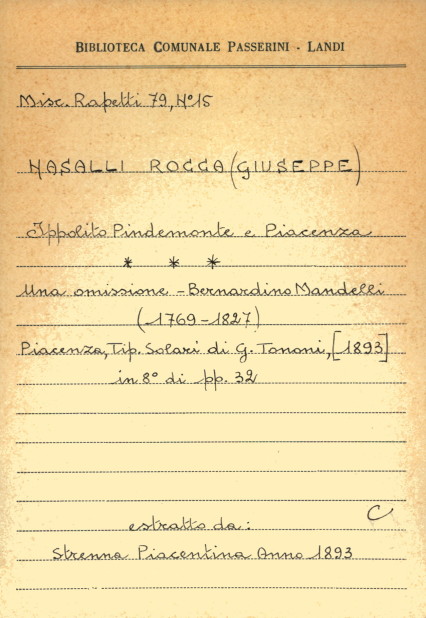 BIBLIOTECA COMUNALE PASSERINI - LANDI
Misc. Rapetti 79, N° 15
NASALLI ROCCA (GIUSEPPE)
Ippolito Pindemonte e Piacenza
* * *
Una omissione - Bernardino Mandelli
(1769-1827)
Piacenza, Tip. Solari di G. Tononi, [1893]
in 8° di pp. 32
C
estratto da:
Strenna Piacentina Anno 1893